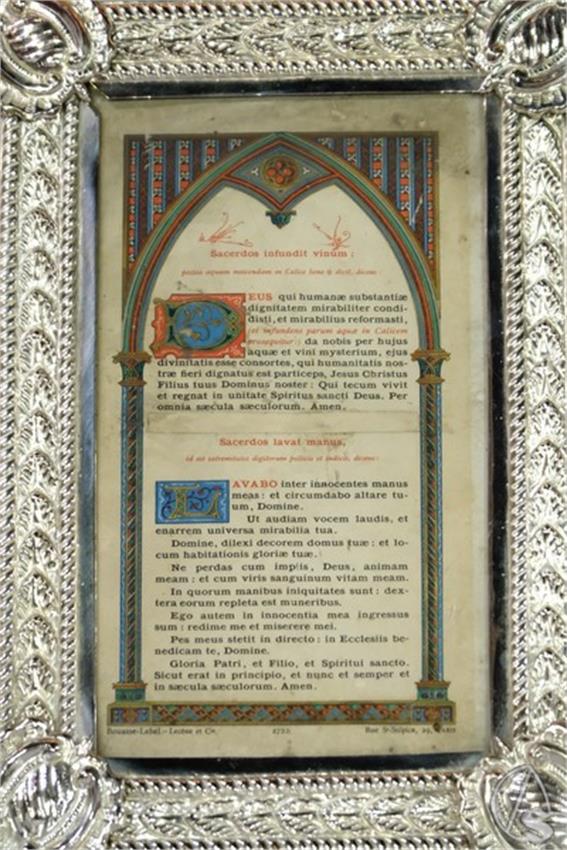 Sacerdos infundit vinum ;
postea aquam miscendam in Calice bene ✠ dicit, dicens :
DEUS qui humanæ substantiæ
dignitatem mirabiliter condi-
disti, et mirabilius reformasti,
(et infundens parum aquæ in Calicem
prosequitur :) da nobis per hujus
aquæ et vini mysterium, ejus
divinitatis esse consortes, qui humanitatis nos-
træ fieri dignatus est particeps, Jesus Christus
Filius tuus Dominus noster : Qui tecum vivit
et regnat in unitate Spiritus sancti Deus. Per
omnia sæcula sæculorum. Amen.
Sacerdos lavat manus,
id est extremitates digitorum pollicis et indicis, dicens :
LAVABO inter innocentes manus
meas : et circumdabo altare tu-
um, Domine.
Ut audiam vocem laudis, et
enarrem universa mirabilia tua.
Domine, dilexi decorem domus tuæ : et lo-
cum habitationis gloriæ tuæ.
Ne perdas cum impiis, Deus, animam
meam : et cum viris sanguinum vitam meam.
In quorum manibus iniquitates sunt : dex-
tera eorum repleta est muneribus.
Ego autem in innocentia mea ingressus
sum : redime me et miserere mei.
Pes meus stetit in directo : in Ecclesiis be-
nedicam te, Domine.
Gloria Patri, et Filio, et Spiritui sancto.
Sicut erat in principio, et nunc et semper et
in sæcula sæculorum. Amen.
Bouasse-Lebel.- Lecène et Cie. Rue St-Sulpice, 29, Paris